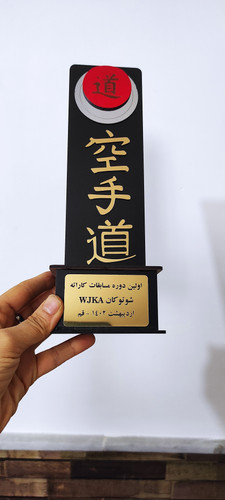 道
空
手
道
اولین دوره مسابقات کاراته
شوتوکان WJKA
اردیبهشت ۱۴۰۲ - قم